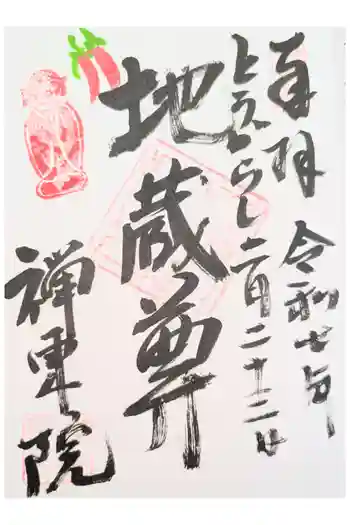 奉拝　令和七年
とうがらし 月二十二日
地蔵尊
禅東院